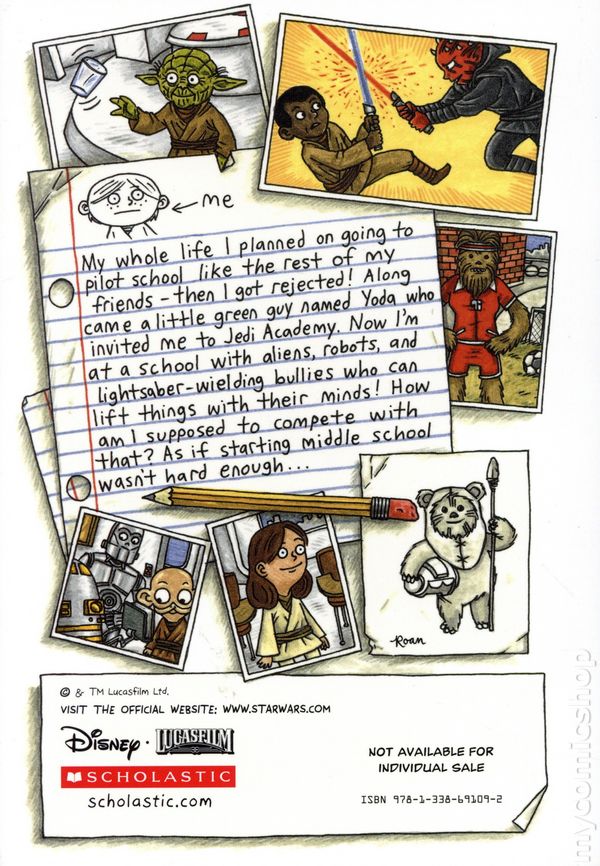 ← me
My whole life I planned on going to
pilot school like the rest of my
friends – then I got rejected! Along
came a little green guy named Yoda who
invited me to Jedi Academy. Now I'm
at a school with aliens, robots, and
lightsaber-wielding bullies who can
lift things with their minds! How
am I supposed to compete with
that? As if starting middle school
wasn't hard enough...
Roan
© & TM Lucasfilm Ltd.
VISIT THE OFFICIAL WEBSITE: WWW.STARWARS.COM
Disney · LUCASFILM
SCHOLASTIC
scholastic.com
NOT AVAILABLE FOR
INDIVIDUAL SALE
ISBN 978-1-338-69109-2
mycomicshop